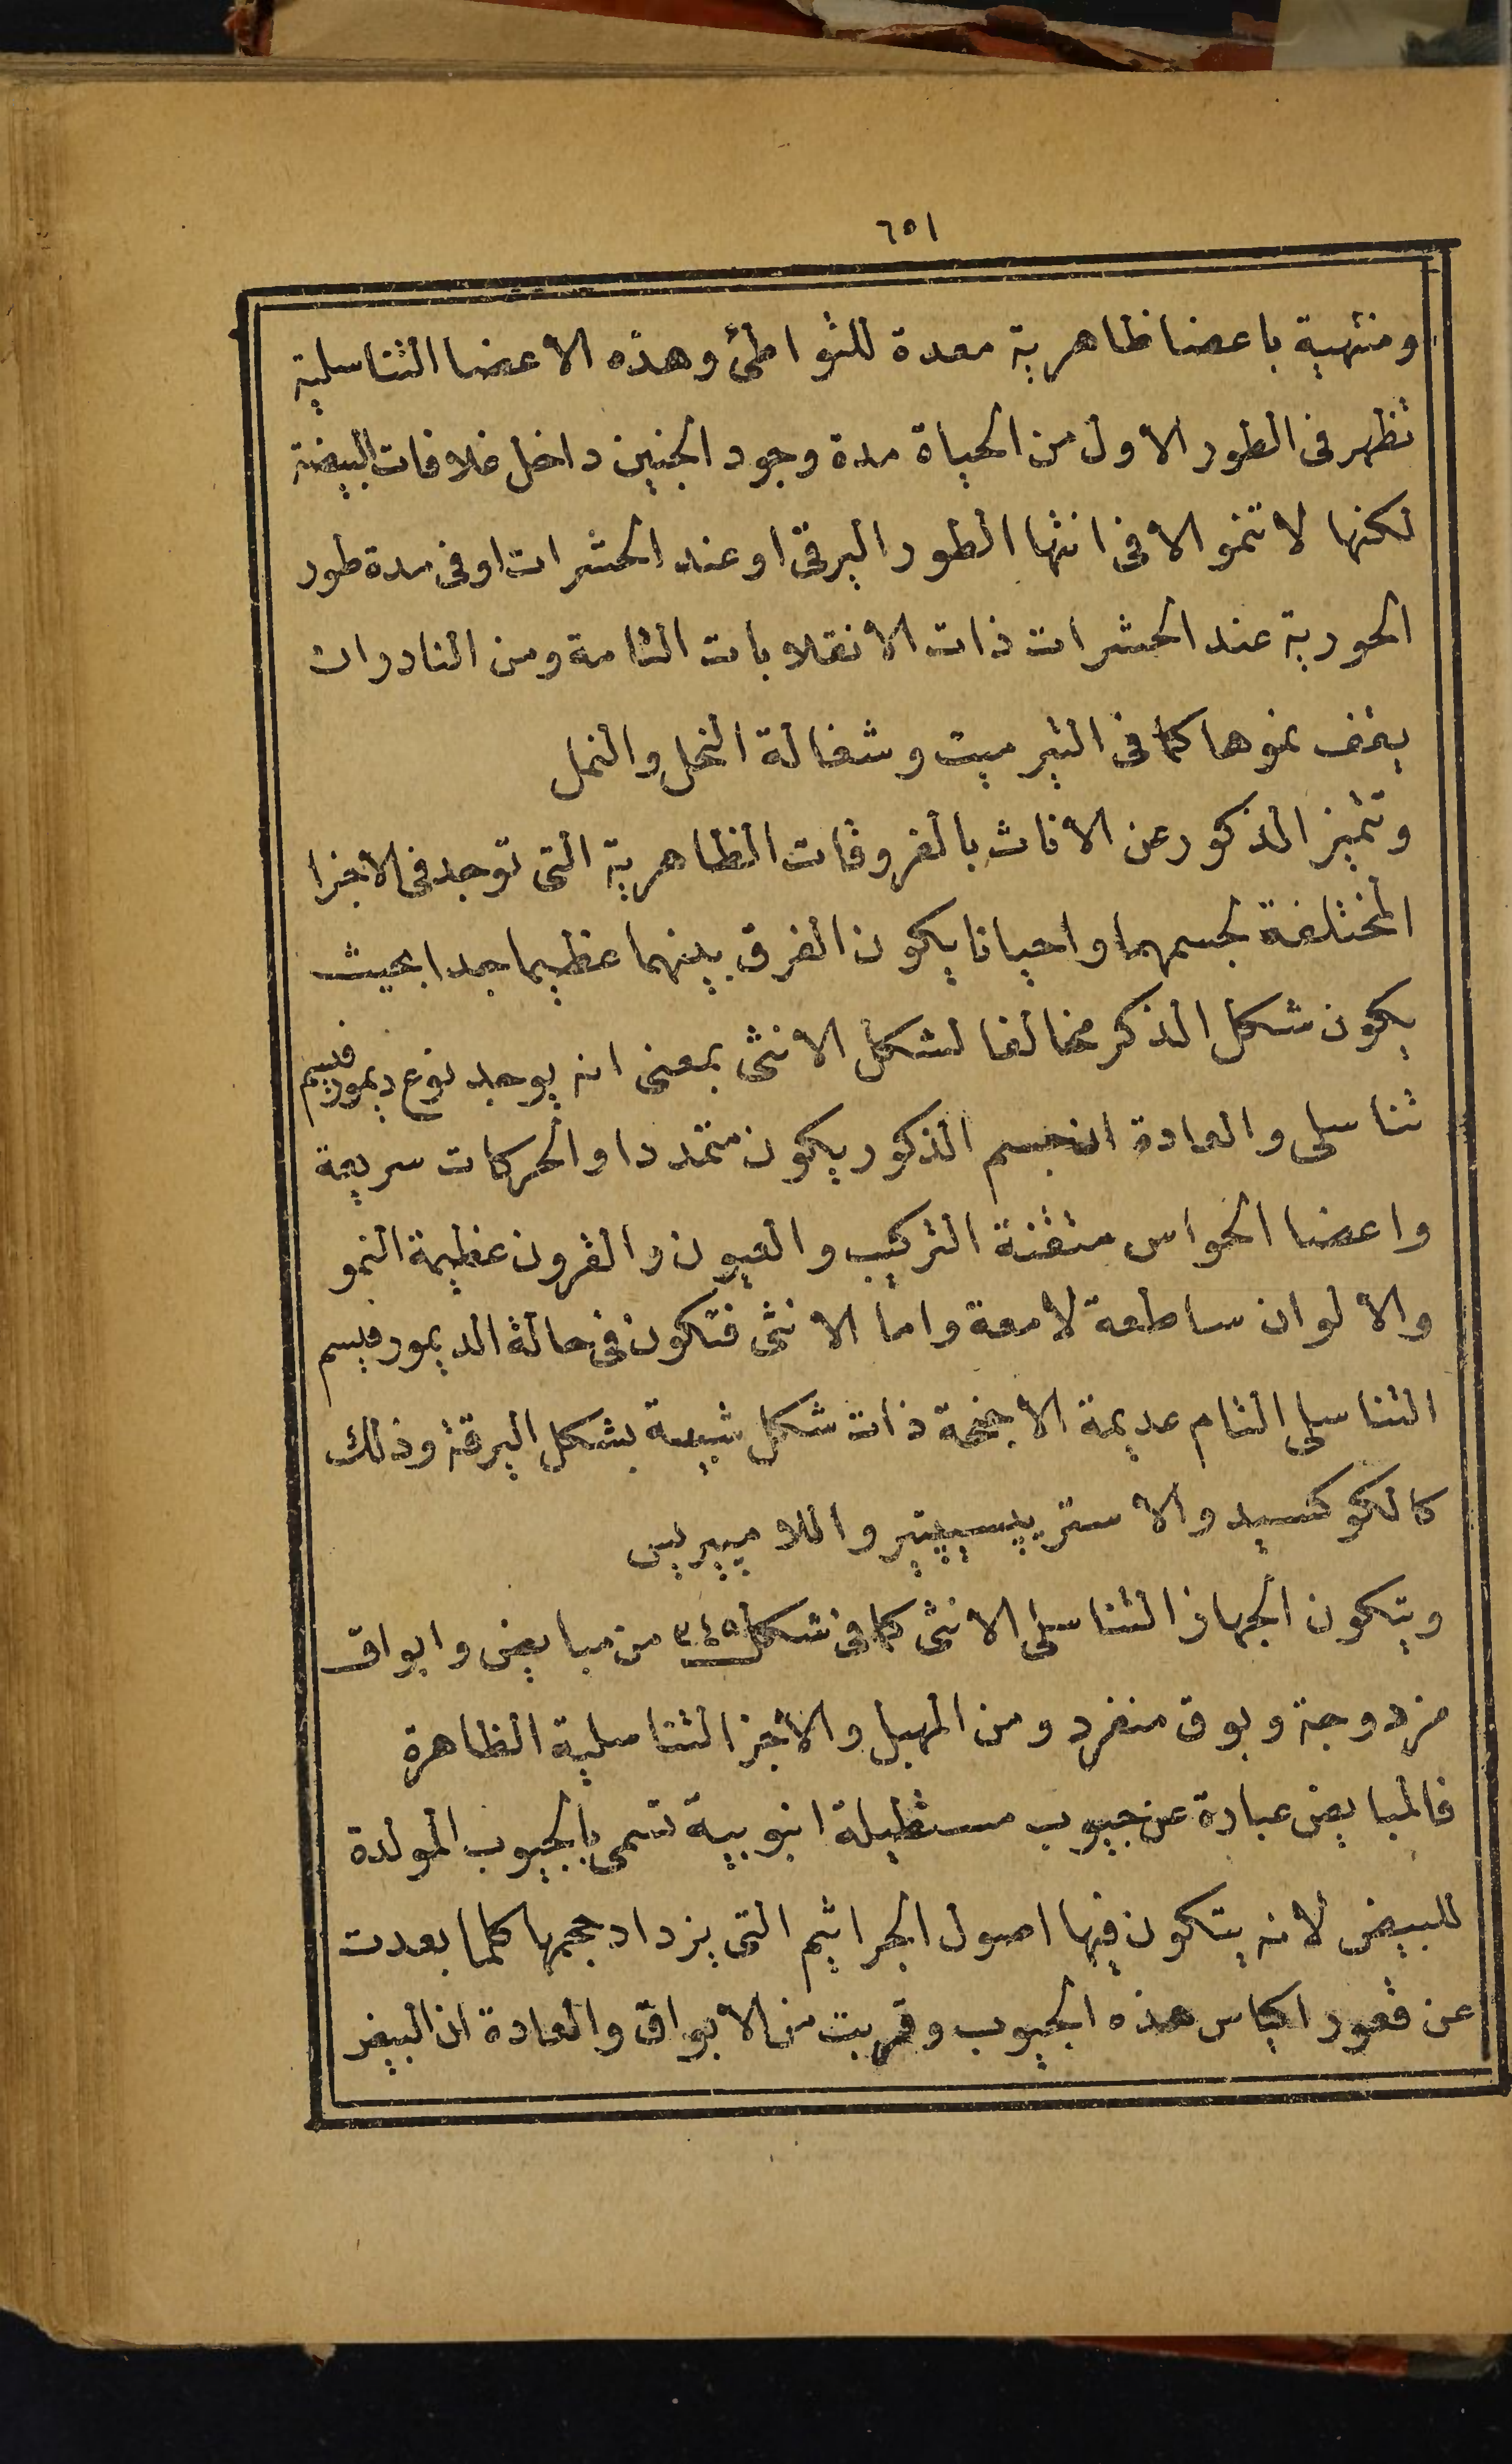 ٦٥١
ومنتهية باعضا ظاهرية معدة للتواطئ وهذه الاعضا التناسلية
تظهر فى الطور الاول من الحياة مدة وجود الجنين داخل غلافات البيضة
لكنها لا تنمو الا فى انتها الطور اليرقى او عند الحشرات او فى مدة طور
الحورية عند الحشرات ذات الانقلابات التامة ومن النادر ان
يقف نموها كما فى التيرميت وشغالة النحل والنمل
وتتميز الذكور عن الاناث بالفروقات الظاهرية التى توجد فى الاجزا
المختلفة لجسمهما واحيانا يكون الفرق بينهما عظيما جدا بحيث
يكون شكل الذكر مخالفا لشكل الانثى بمعنى انه يوجد نوع ديمورفيسم
تناسلى والعادة ان جسم الذكور يكون متمددا والحركات سريعة
واعضا الحواس متقنة التركيب والعيون والقرون عظيمة النمو
والالوان ساطعة لامعة واما الانثى فتكون فى حالة الديمورفيسم
التناسلى التام عديمة الاجنحة ذات شكل شبيه بشكل اليرقة وذلك
كالكوكسيد والاستريبسيبتير واللامبيريس
ويتكون الجهاز التناسلى الانثى كما فى شكل ٣٤٥ من مبايض وابواق
مزدوجة وبوق منفرد ومن المهبل والاجزا التناسلية الظاهرة
فالمبايض عبارة عن جيوب مستطيلة انبوبية تسمى بالجيوب المولدة
للبيض لانه يتكون فيها اصول الجراثيم التى يزداد حجمها كلما بعدت
عن قعور اكياس هذه الجيوب وقربت من الابواق والعادة ان البيض